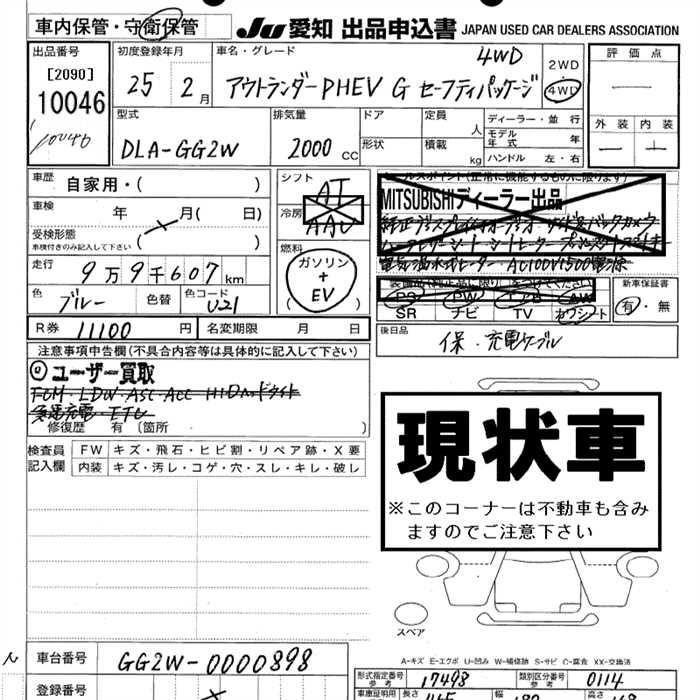 車内保管・守衛保管
JU 愛知 出品申込書 JAPAN USED CAR DEALERS ASSOCIATION
出品番号
[2090]
10046
10046
初度登録年月
25 2月
車名・グレード
4WD
アウトランダーPHEV G セーフティパッケージ
2WD
4WD
評価点
外装 内装
型式
DLA-GG2W
排気量
2000 CC
ドア
形状
定員 人
積載 kg
ディーラー・並行
モデル年式 年
ハンドル 左・右
車歴 自家用・( )
車検 年 月( 日)
受検形態
車検付きのみ記入して下さい
走行 9万9千607 km
色 ブルー 色替 色コード U21
R券 11100 円 名変期限 月 日
シフト AT
冷房 AAC
燃料
ガソリン
+
EV
セールスポイント(正常に機能するものに限ります)
MITSUBISHIディーラー出品
電気温水ヒーター AC100V1500電源
装備品(純正品に限り○をつけてください)
PS PW エアB AW
SR ナビ TV カワシート
新車保証書
有・無
後日品
保・充電ケーブル
注意事項申告欄(不具合内容等は具体的に記入して下さい)
ユーザー買取
FCM・LDW・ASC・ACC HIDヘッドライト
急速充電・ETC
修復歴 有 〔箇所 〕
検査員記入欄
FW キズ・飛石・ヒビ割・リペア跡・X要
内装 キズ・汚レ・コゲ・穴・スレ・キレ・破レ
現状車
※このコーナーは不動車も含み
ますのでご注意下さい
スペア
A-キズ E-エクボ U-凹み W-補修跡 S-サビ C-腐食 XX-交換済
車台番号 GG2W-0000898
登録番号
型式指定番号 参考 17493
類別区分番号 参考 0114
車庫証明用 長さ 465 幅 180 高さ 168